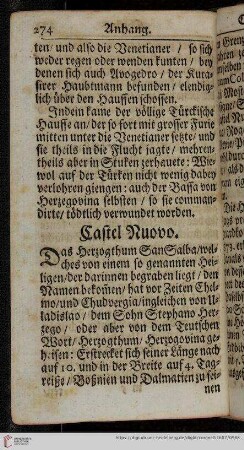 274 Anhang.
ten/ und also die Venetianer / so sich
weder regen oder wenden kunten / bey
denen sich auch Avogedro / der Kuras-
sirer Haubtmann befunden / elendig-
lich über den Hauffen schossen.
Indem kame der völlige Türckische
Hauffe an / der sofort mit grosser Furie
mitten unter die Venetianer setzte / und
sie theils in die Flucht jagte / mehren-
theils aber in Stuken zerhauete: Wie-
wol auf der Türken nicht wenig dabey
verlohren giengen: auch der Bassa von
Herzegovina selbsten / so sie comman-
dirte / tödtlich verwundet worden.
Castel Nuovo.
Das Herzogthum San Salba / wel-
ches von einem so genannten Hei-
ligen / der darinnen begraben liegt / den
Namen bekom̃en / hat vor Zeiten Chel-
mo / und Chudvergia / ingleichen von Vla-
dislao / dem Sohn Stephano Her-
zego / oder aber von dem Teutschen
Wort / Herzogthum / Herzogovina ge-
heisen: Erstrecket sich seiner Länge nach
auf 10. und in der Breite auf 4. Tag-
reiße / Boßnien und Dalmatien zu sei-
nen